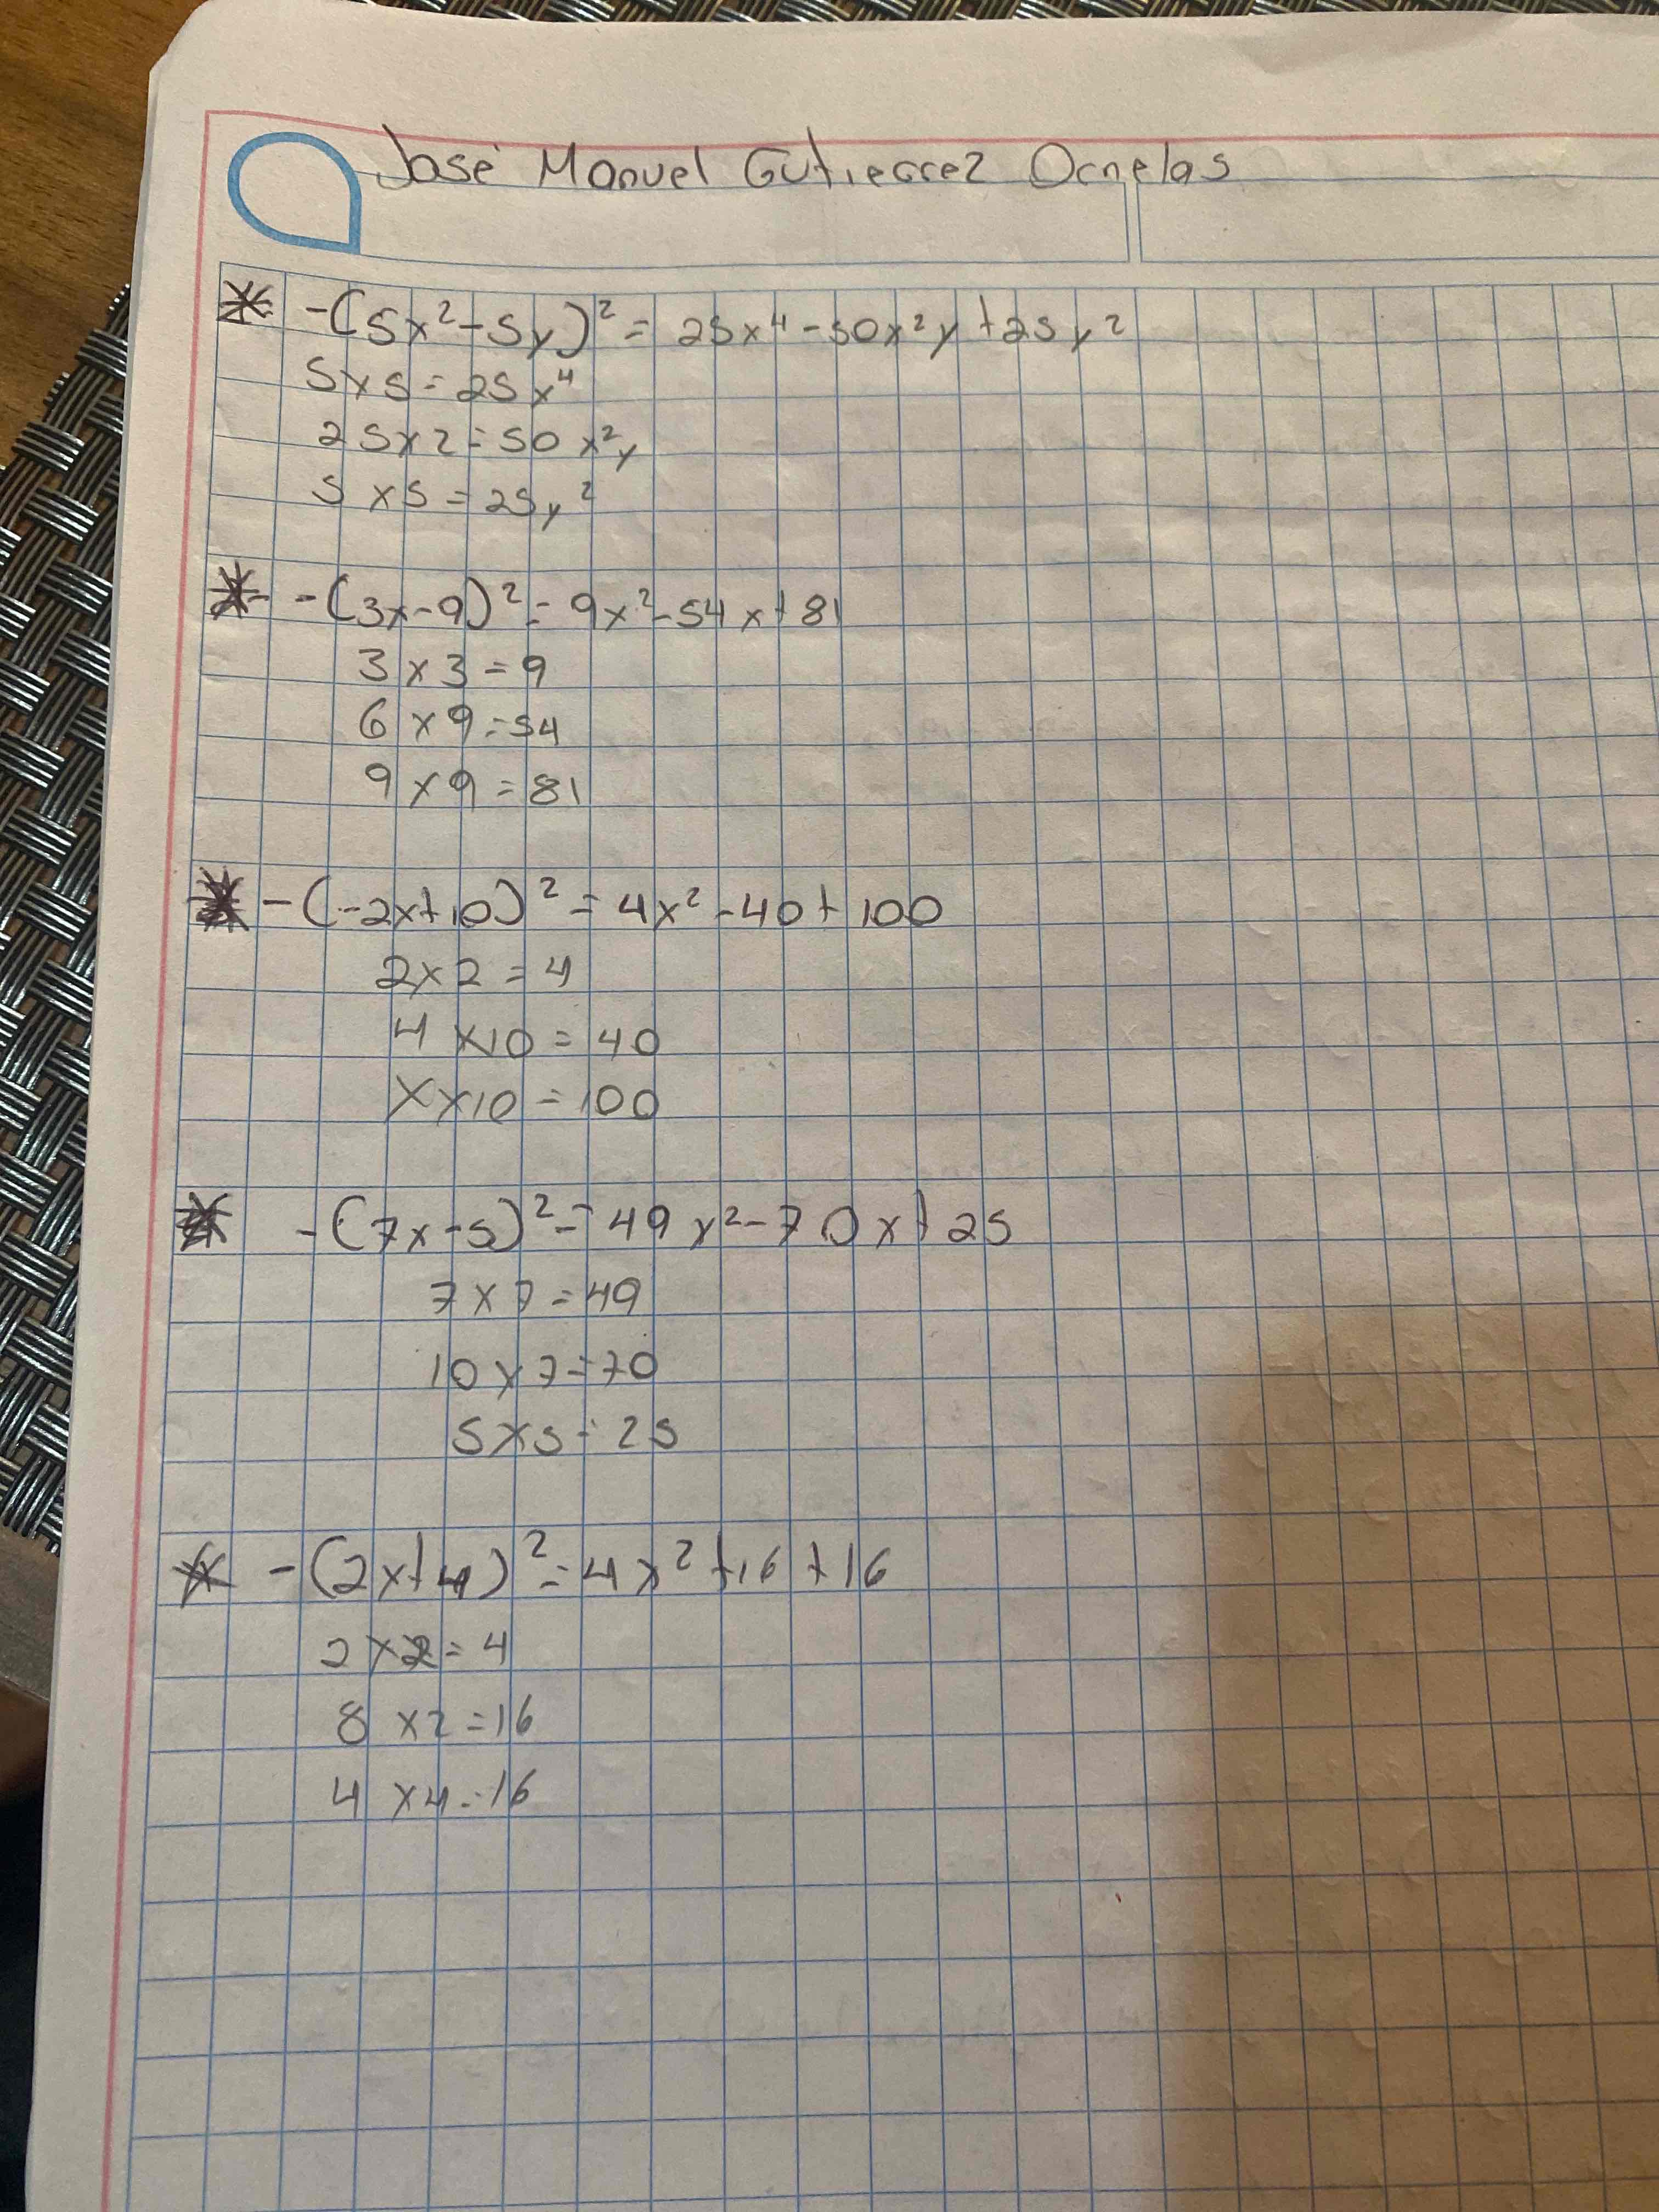 José Manuel Gutierrez Ornelas
* -(5x²-5y)² = 25x⁴-50x²y+25y²
5x5=25x⁴
25x2=50x²y
5x5=25y²
* -(3x-9)²=9x²-54x+81
3x3=9
6x9=54
9x9=81
* -(-2x+10)²=4x²-40+100
2x2=4
4x10=40
Xx10=100
* -(7x-5)²=49x²-70x+25
7x7=49
10x7=70
5x5=25
* -(2x+4)²=4x²+16+16
2x2=4
8x2=16
4x4=16